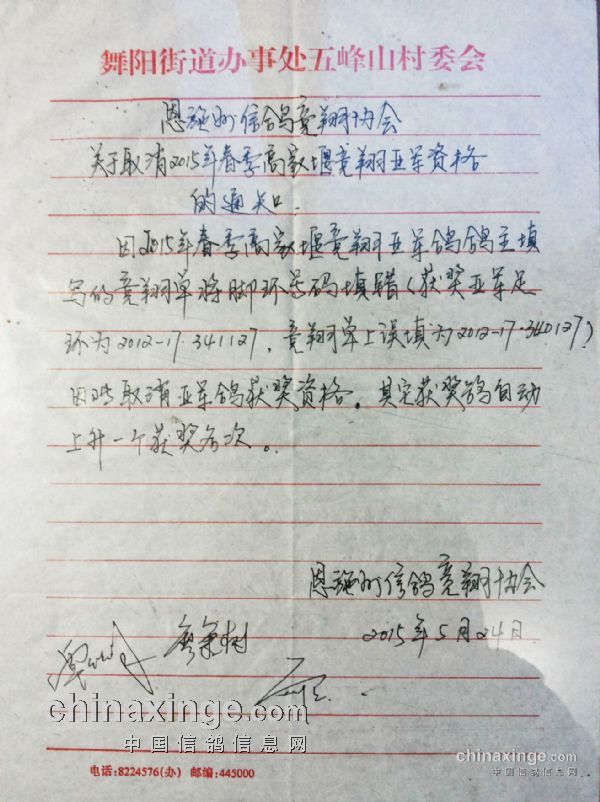 舞阳街道办事处五峰山村委会
恩施州信鸽竞翔协会
关于取消2015年春季高家堰竞翔亚军资格
的通知.
因2015年春季高家堰竞翔亚军鸽鸽主填
写的竞翔单将脚环号码填错(获奖亚军足
环为2012-17.341127,竞翔单上误填为2012-17.340127)
因此取消亚军鸽获奖资格。其它获奖鸽自动
上升一个获奖名次。
恩施州信鸽竞翔协会
2015年5月24日
chinaxinge.com
中国信鸽信息网
chinaxinge.com
中国信鸽信息网
电话:8224576(办) 邮编:445000